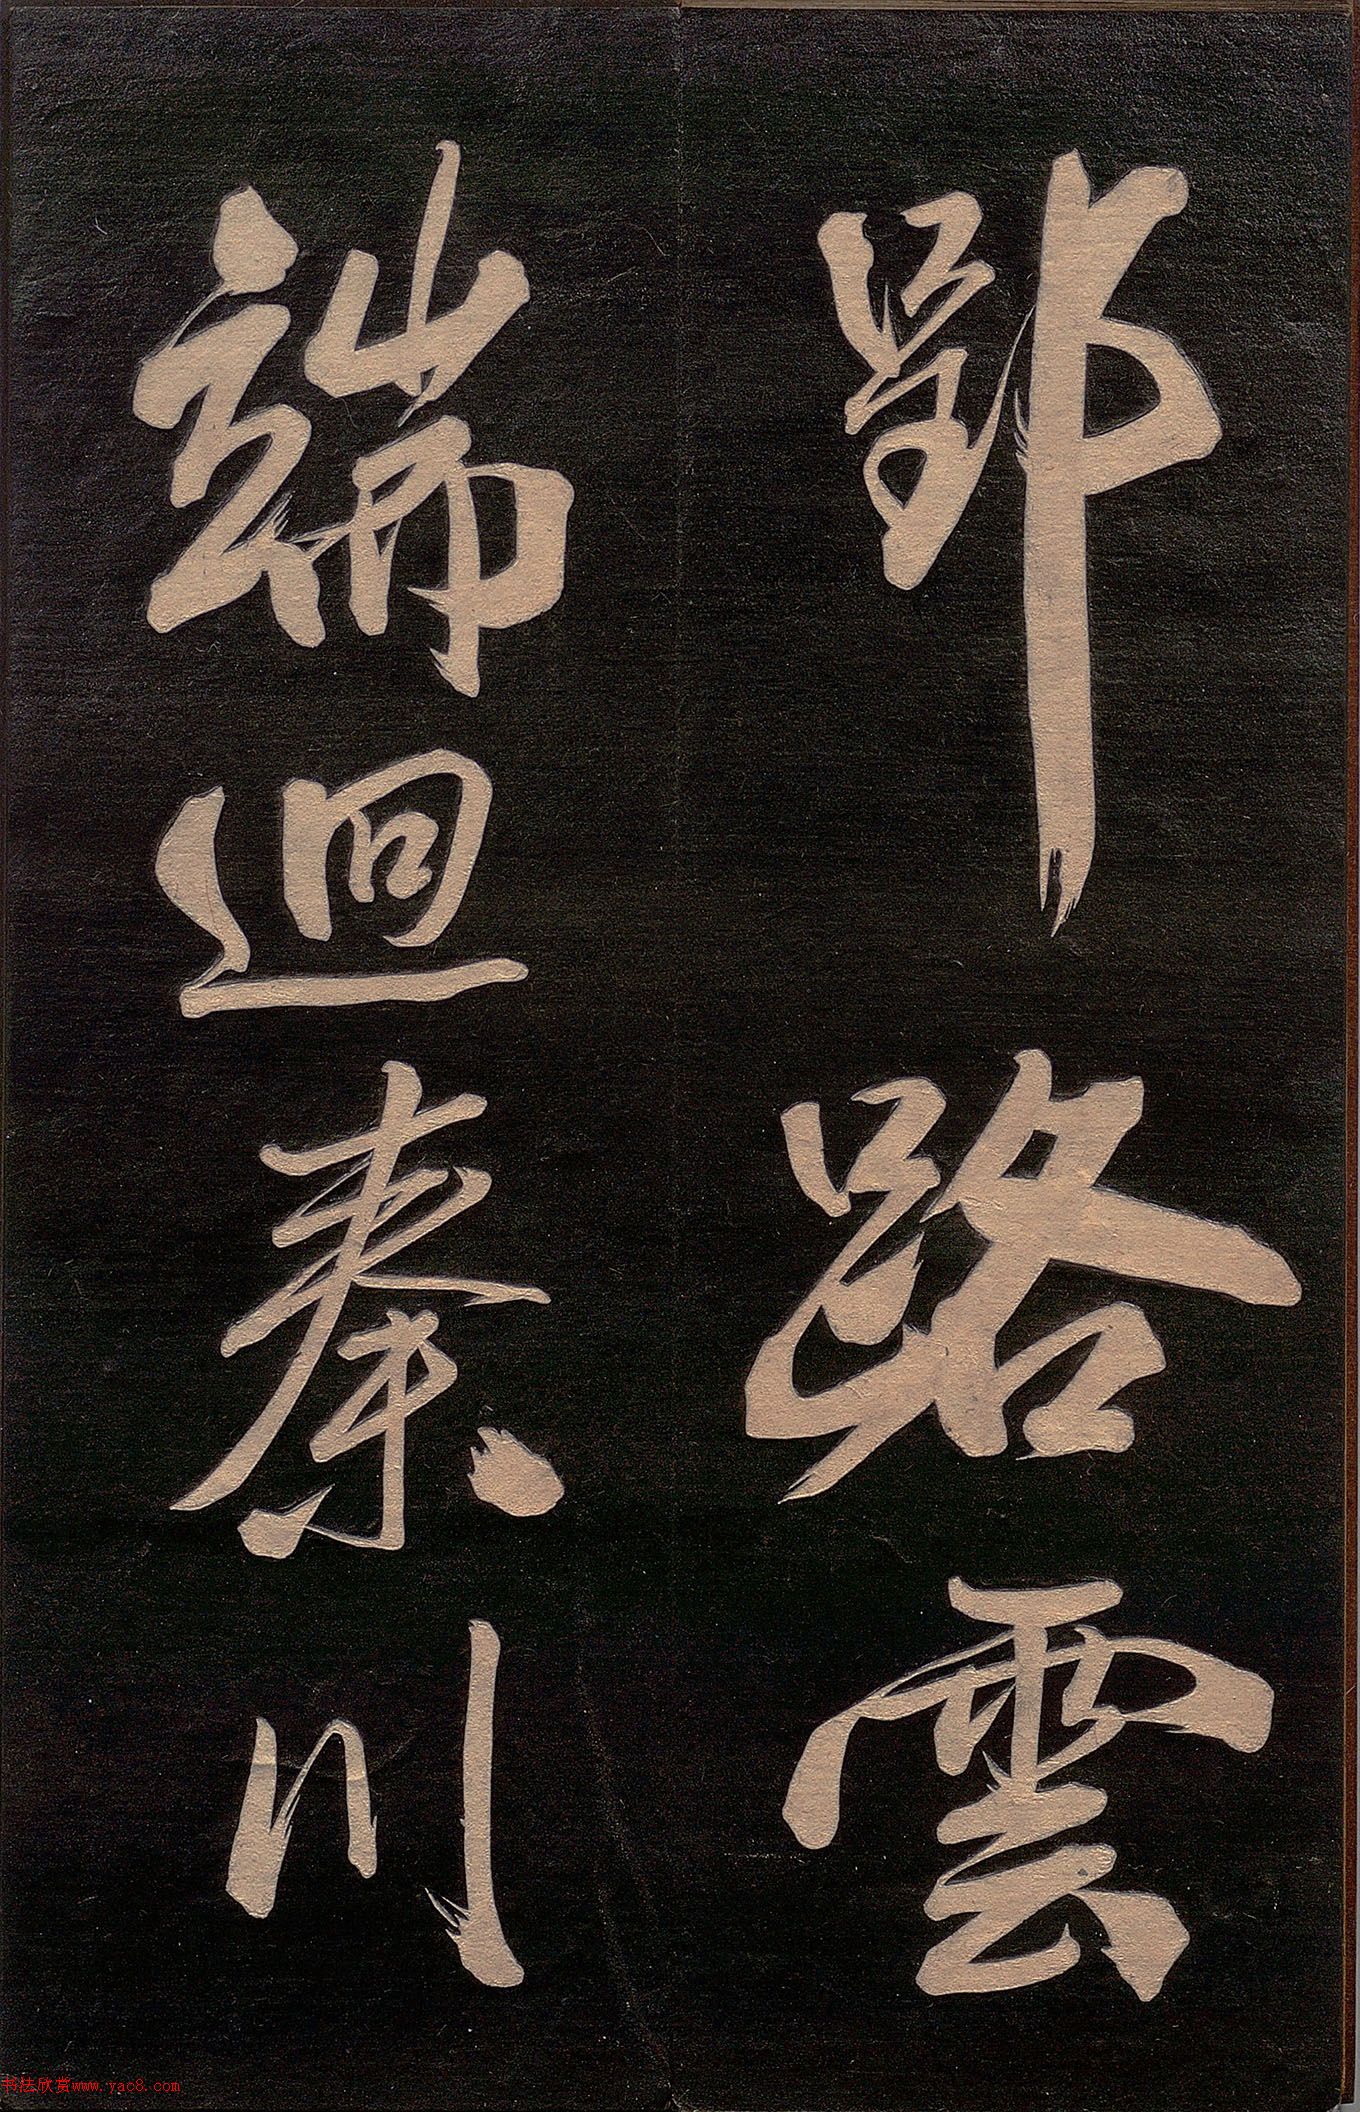 郢路雲
端迴秦川
书法欣赏www.yac8.com